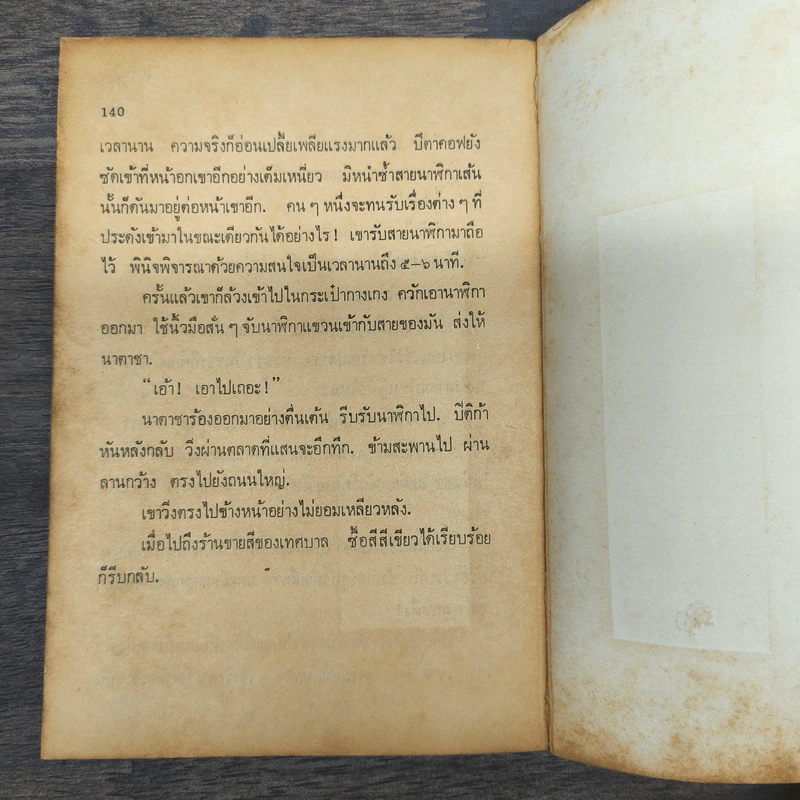 140
เวลานาน ความจริงก็อ่อนเปลี้ยเพลียแรงมากแล้ว ปีตาคอฟยัง
ซัดเข้าที่หน้าอกเขาอีกอย่างเต็มเหนี่ยว มิหนำซ้ำสายนาฬิกาเส้น
นั้นก็ดันมาอยู่ต่อหน้าเขาอีก. คน ๆ หนึ่งจะทนรับเรื่องต่าง ๆ ที่
ประดังเข้ามาในขณะเดียวกันได้อย่างไร! เขารับสายนาฬิกามาถือ
ไว้ พินิจพิจารณาด้วยความสนใจเป็นเวลานานถึง ๕–๖ นาที.
ครั้นแล้วเขาก็ล้วงเข้าไปในกระเป๋ากางเกง ควักเอานาฬิกา
ออกมา ใช้นิ้วมือสั่น ๆ จับนาฬิกาแขวนเข้ากับสายของมัน ส่งให้
นาตาชา.
“เอ้า! เอาไปเถอะ!”
นาตาชาร้องออกมาอย่างตื่นเต้น รีบรับนาฬิกาไป. ปีติก้า
หันหลังกลับ วิ่งผ่านตลาดที่แสนจะอึกทึก. ข้ามสะพานไป ผ่าน
ลานกว้าง ตรงไปยังถนนใหญ่.
เขาวิ่งตรงไปข้างหน้าอย่างไม่ยอมเหลียวหลัง.
เมื่อไปถึงร้านขายสีของเทศบาล ซื้อสีสีเขียวได้เรียบร้อย
ก็รีบกลับ.